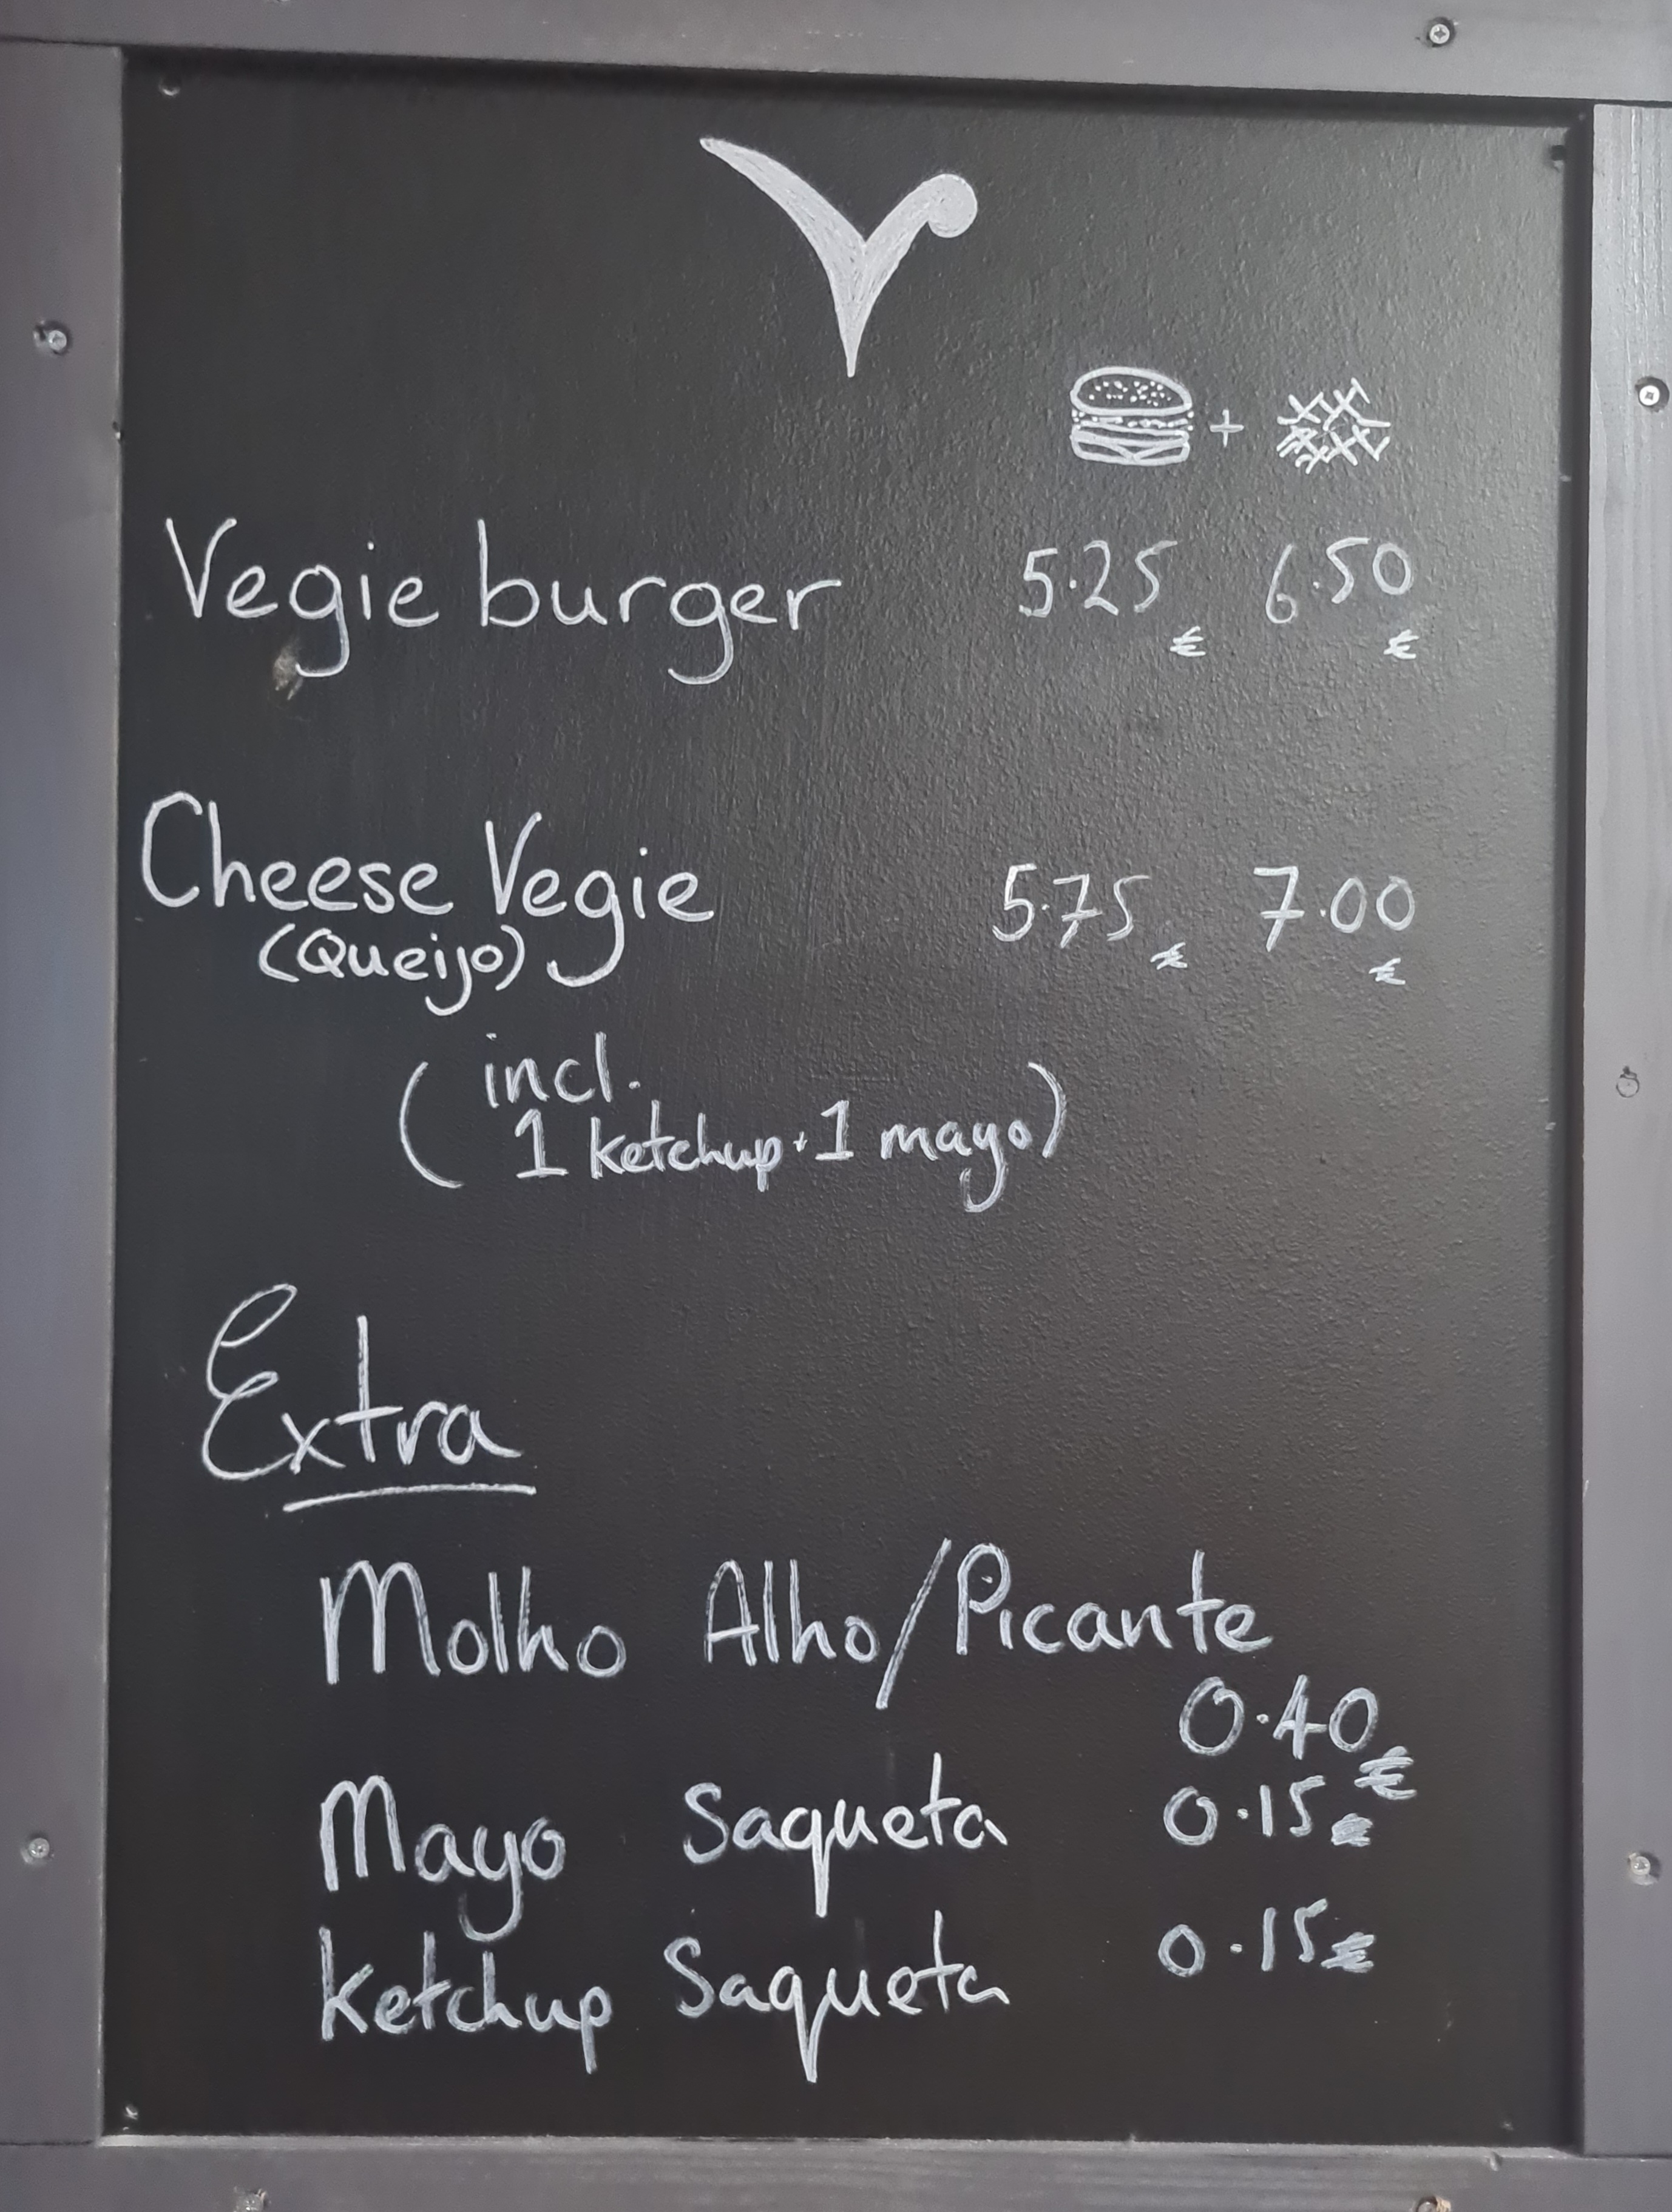 V
+
Vegie burger 5.25 € 6.50 €
Cheese Vegie 5.75 € 7.00 €
(Queijo)
( incl.
1 ketchup + 1 mayo)
Extra
Molho Alho/Picante
0.40 €
Mayo Saqueta 0.15 €
Ketchup Saqueta 0.15 €